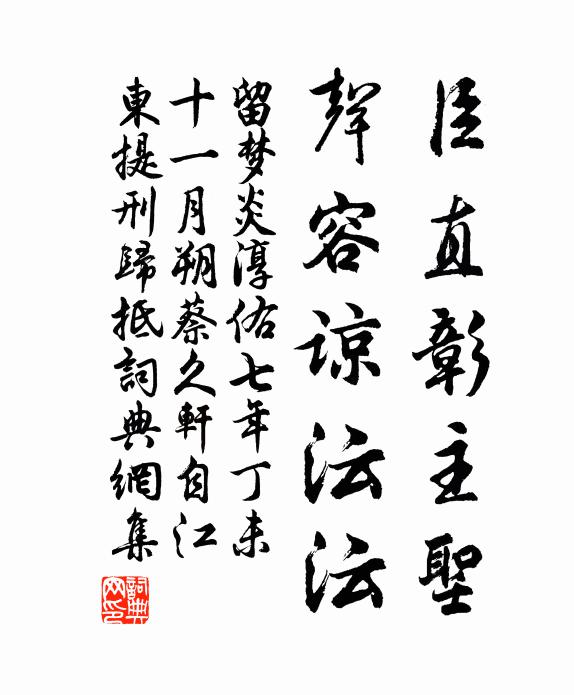 臣直彰主聖
聲容諒沄沄
留梦炎淳佑七年丁未
十一月朔蔡久軒自江
東提刑歸抵詞典網集
詞典网印